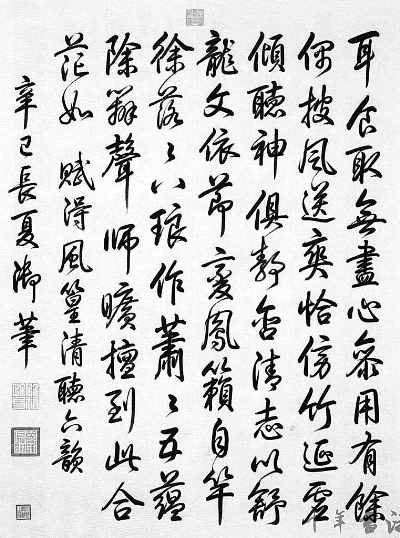 耳食取無盡心叅用有餘
偶披風送爽恰傍竹延虛
傾聽神俱靜含清志以舒
龍文依節變鳳籟自竿
徐落〻八琅作蕭〻五蘊
除辨聲師曠擅到此合
茫如 賦得風篁清聽六韻
辛巳長夏御筆